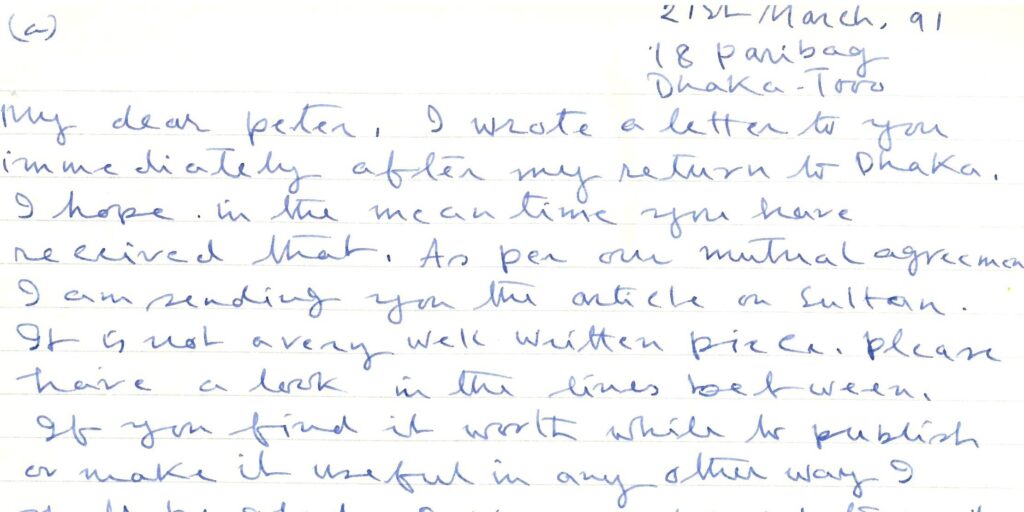 (a)
21st March, 91
18 paribag
Dhaka-1000
My dear peter, I wrote a letter to you
immediately after my return to Dhaka.
I hope in the mean time you have
received that. As per our mutual agreemen
I am sending you the article on Sultan.
It is not a very well written piece. please
have a look in the lines between.
If you find it worth while to publish
or make it useful in any other way I